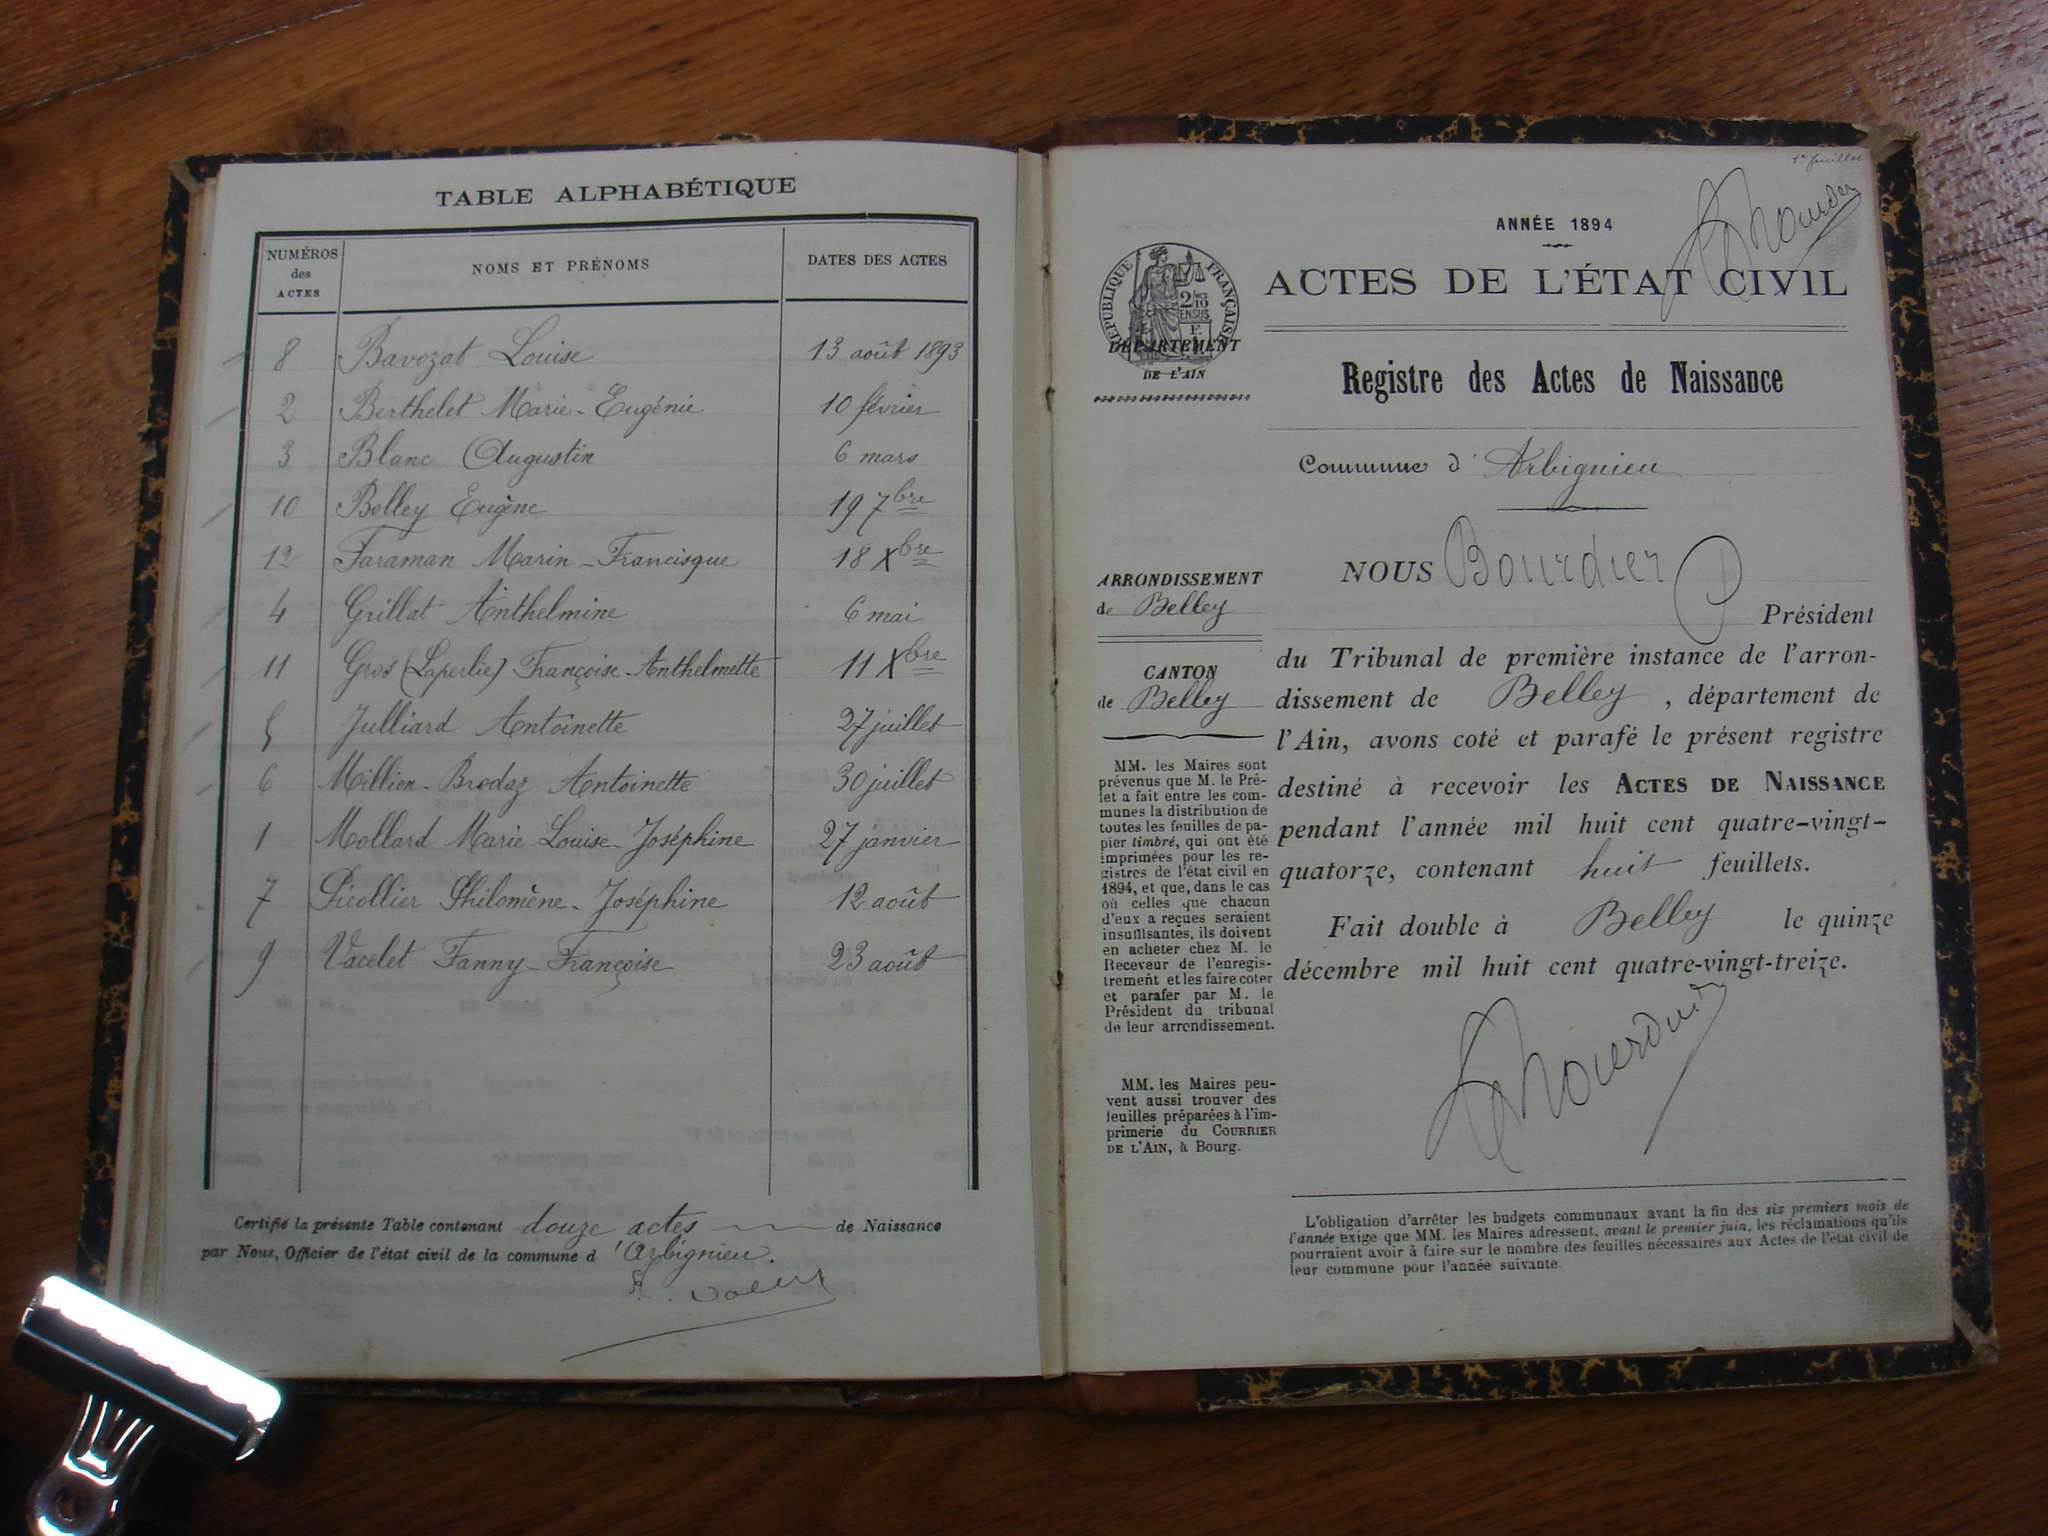 TABLE ALPHABÉTIQUE
NUMÉROS des ACTES NOMS ET PRÉNOMS DATES DES ACTES
8 Bavozat Louise 13 août 1893
2 Berthelet Marie-Eugénie 10 février
3 Blanc Augustin 6 mars
10 Belley Eugène 19 7bre
12 Faraman Marin-Francisque 18 Xbre
4 Grillat Anthelmine 6 mai
11 Gros (Laperlie) Françoise-Anthelmette 11 Xbre
5 Julliard Antoinette 27 juillet
6 Million-Brodaz Antoinette 30 juillet
1 Mollard Marie-Louise-Joséphine 27 janvier
7 Picollier Philomène-Joséphine 12 août
9 Vacelet Fanny-Françoise 23 août
Certifié la présente Table contenant douze actes de Naissance
par Nous, Officier de l'état civil de la commune d'Arbignieu.
1er feuillet
ANNÉE 1894
ACTES DE L'ÉTAT CIVIL
RÉPUBLIQUE FRANÇAISE
2 10
EN SUS
DÉPARTEMENT
DE L'AIN
Registre des Actes de Naissance
Commune d'Arbignieu
ARRONDISSEMENT
de Belley
CANTON
de Belley
MM. les Maires sont
prévenus que M. le Pré-
fet a fait entre les com-
munes la distribution de
toutes les feuilles de pa-
pier timbré, qui ont été
imprimées pour les re-
gistres de l'état civil en
1894, et que, dans le cas
où celles que chacun
d'eux a reçues seraient
insuffisantes, ils doivent
en acheter chez M. le
Receveur de l'enregis-
trement et les faire coter
et parafer par M. le
Président du tribunal
de leur arrondissement.
MM. les Maires peu-
vent aussi trouver des
feuilles préparées à l'im-
primerie du COURRIER
DE L'AIN, à Bourg.
NOUS Bourdier
Président
du Tribunal de première instance de l'arron-
dissement de Belley, département de
l'Ain, avons coté et parafé le présent registre
destiné à recevoir les ACTES DE NAISSANCE
pendant l'année mil huit cent quatre-vingt-
quatorze, contenant huit feuillets.
Fait double à Belley le quinze
décembre mil huit cent quatre-vingt-treize.
L'obligation d'arrêter les budgets communaux avant la fin des six premiers mois de
l'année exige que MM. les Maires adressent, avant le premier juin, les réclamations qu'ils
pourraient avoir à faire sur le nombre des feuilles nécessaires aux Actes de l'état civil de
leur commune pour l'année suivante.